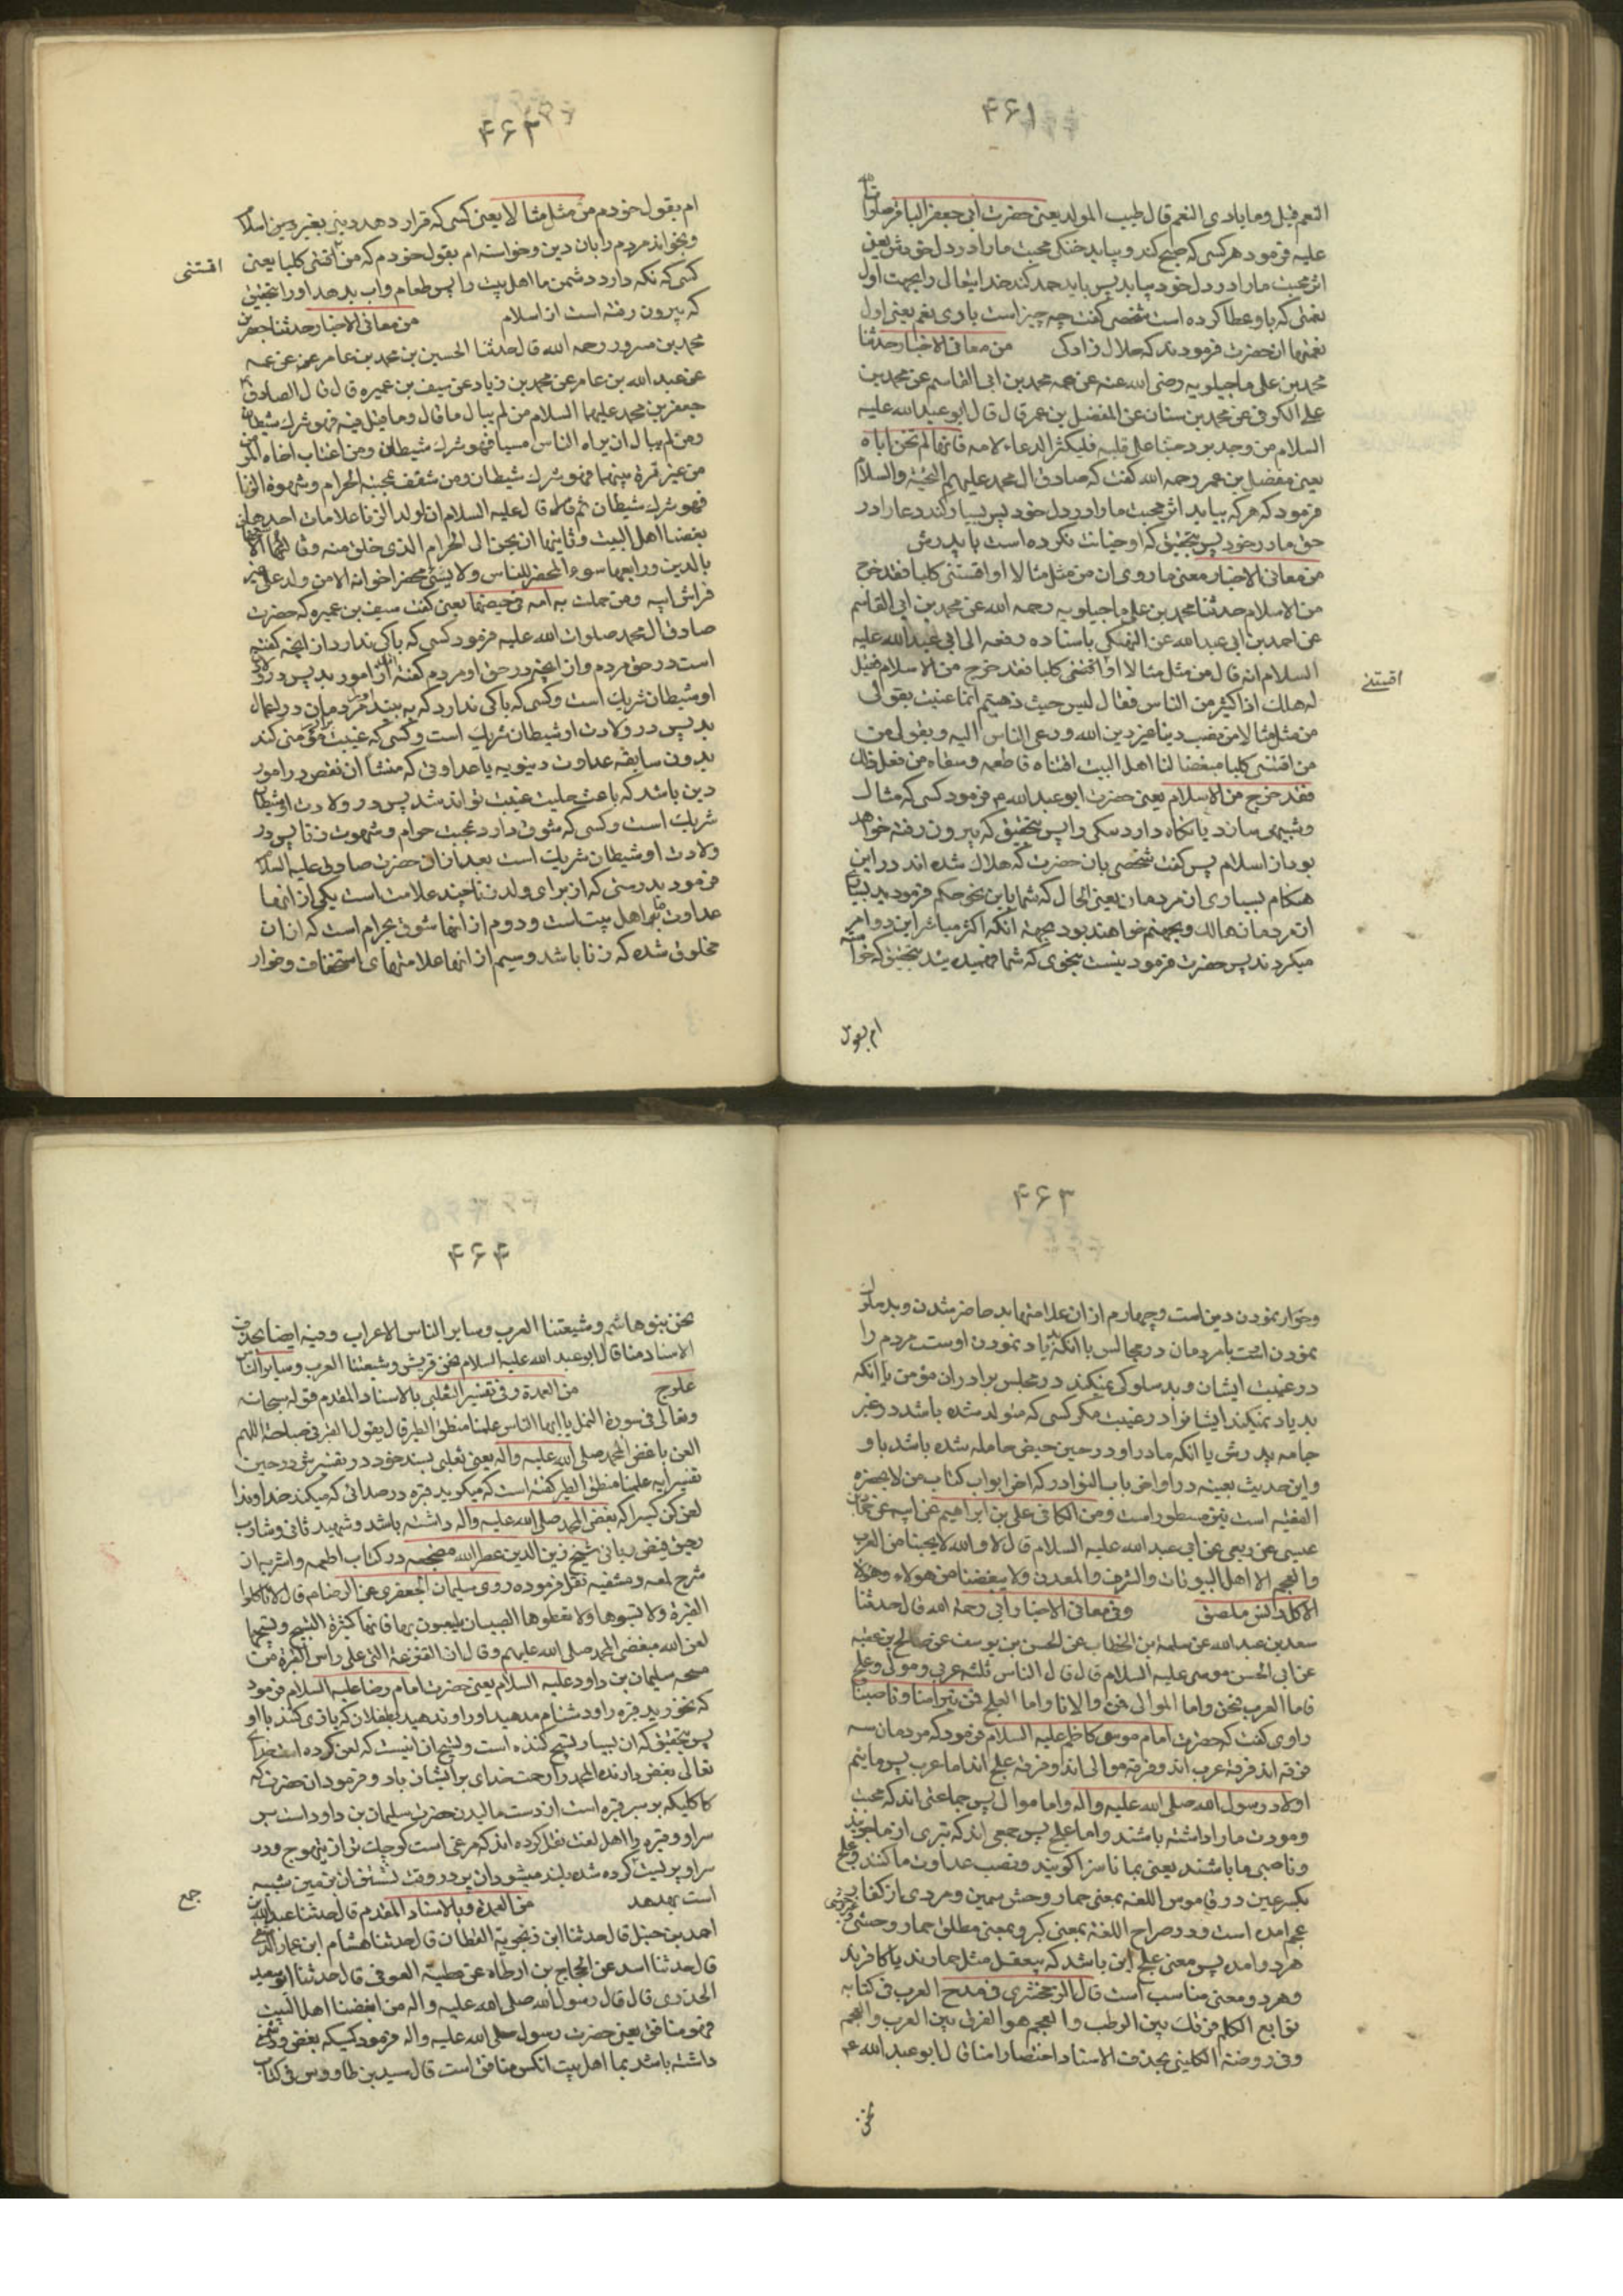 ۴۶۱
النعم قیل وما بادی النعم قال طیب المولد یعنی حضرت ابی جعفر الباقر صلوات
علیه فرمود هر کسی که صبح کند و بیابد خنکی محبت ما را در دل خودش یعنی
اثر محبت ما را در دل خود بیابد پس باید حمد کند خدایتعالی را بجهت اول
نعمتی که باو عطا کرده است شخصی گفت چه چیز است بادی نعم یعنی اول
نعمتها ان حضرت فرمودند که حلال زادکی من معانی الاخبار حدثنا
محمد بن علی ماجیلویه رضی الله عنه عن عمه محمد بن ابی القاسم عن محمد بن
علی الکوفی عن محمد بن سنان عن المفضل بن عمر قال قال ابو عبد الله علیه
السلام من وجد برد حبنا علی قلبه فلیکثر الدعاء لامه فانها لم تخن اباه
یعنی مفضل بن عمر رحمه الله گفت که صادق ال محمد علیهم التحیة والسلام
فرمود که هر که بیابد اثر محبت ما را در دل خود پس بسیار کند دعا را در
حق مادر خود پس بتحقیق که او خیانت نکرده است با پدرش
من معانی الاخبار معنی ما روی ان من مثل مثالا او اقتنی کلبا فقد خرج
من الاسلام حدثنا محمد بن علی ماجیلویه رحمه الله عن محمد بن ابی القاسم
عن احمد بن ابی عبد الله عن النهیکی باسناده رفعه الی ابی عبد الله علیه
السلام انه قال من مثل مثالا او اقتنی کلبا فقد خرج من الاسلام فقیل
له هلک اذا کثیر من الناس فقال لیس حیث ذهبتم انما عنیت بقولی
من مثل مثالا من نصب دینا غیر دین الله ودعی الناس الیه وبقولی من
من اقتنی کلبا مبغضا لنا اهل البیت اقتناه فاطعمه وسقاه من فعل ذلک
فقد خرج من الاسلام یعنی حضرت ابو عبد الله م فرمود کسی که مثال
وشبیهی سازد یا نکاه دارد سکی را پس بتحقیق که بیرون رفته خواهد
بود از اسلام پس گفت شخصی بان حضرت که هلاک شده اند در این
هنکام بسیاری از مردمان یعنی الحال که شما باین نحو حکم فرمودید
ان مردمان هالک وبجهنم خواهند بود بجهة انکه اکثر مباشر این دو امر
میکردند پس حضرت فرمود نیست بنحوی که شما فهمیده یند بتحقیق که خواسته
ام بقول
اقتنی
۴۶۲
ام بقول خودم من مثل مثالا یعنی کسی که قرار دهد دینی بغیر دین اسلام
وبخواند مردم را بان دین وخواسته ام بقول خودم که من اقتنی کلبا یعنی
کسی که نکه دارد دشمن ما اهل بیت را پس طعام واب بدهد او را بتحقیق
که بیرون رفته است از اسلام من معانی الاخبار حدثنا جعفر بن
محمد بن مسرور رحمه الله قال حدثنا الحسین بن محمد بن عامر عن عمه
عن عبد الله بن عامر عن محمد بن زیاد عن سیف بن عمیره قال قال الصادق
جعفر بن محمد علیهما السلام من لم یبال ما قال وما قیل فیه فهو شرک شیطان
ومن لم یبال ان یراه الناس مسیا فهو شرک شیطان ومن اغتاب اخاه المؤمن
من غیر ترة بینهما فهو شرک شیطان ومن شغف بمحبة الحرام وشهوة الزنا
فهو شرک شیطان ثم قال علیه السلام ان لولد الزنا علامات احدیها
بغضنا اهل البیت وثانیها ان یحن الی الحرام الذی خلق منه وثالثها
بالدین ورابعها سوء المحضر للناس ولا یسئ محضر اخوانه الا من ولد علی غیر
فراش ابیه ومن حملت به امه فی حیضها یعنی گفت سیف بن عمیره که حضرت
صادق ال محمد صلوات الله علیه فرمود کسی که باکی ندارد از انچه گفته
است در حق مردم واز انچه در حق او مردم گفته اند از امور بد پس در ولادت
او شیطان شریک است وکسی که باکی ندارد که به بینند مردمان در اعمال
بد پس در ولادت او شیطان شریک است وکسی که غیبت مؤمنی کند
بدون سابقه عداوت دینویه یا عداوتی که منشا ان نقص در امور
دین باشد که باعث حلیت غیبت تواند شد پس در ولادت او شیطان
شریک است وکسی که شوق دارد بمحبت حرام وشهوت زنا پس در
ولادت او شیطان شریک است بعد از ان حضرت صادق علیه السلام
فرمود بدرستی که از برای ولد زنا چند علامت است یکی از انها
عداوت ما اهل بیت است ودوم از انها شوق بحرام است که از ان
مخلوق شده که زنا باشد وسیم از انها علامتهای استخفاف وخوار
اقتنی
۴۶۳
وخوار نمودن دین است وچهارم از ان علامتها بد حاضر شدن وبد سلوک
نمودن است با مردمان در مجالس با انکه بد یاد نمودن اوست مردم را
در غیبت ایشان وبد سلوکی نمیکند در مجلس برادران مؤمن یا انکه
بد یاد نمیکند ایشانرا در غیبت مکر کسی که متولد شده باشد در غیر
جامه پدرش یا انکه مادر او در حین حیض حامله شده باشد باو
واین حدیث بعینه در اواخر باب النوادر که اخر ابواب کتاب من لا یحضره
الفقیه است نیز مسطور است ومن الکافی علی بن ابراهیم عن ابیه عن حماد بن
عیسی عن ربعی عن ابی عبد الله علیه السلام قال لا والله لا یحبنا من العرب
والعجم الا اهل البیوتات والشرف والمعدن ولا یبغضنا من هولاء وهولاء
الا کل دنس ملصق وفی معانی الاخبار ابی رحمة الله قال حدثنا
سعد بن عبد الله عن سلمة بن الخطاب عن الحسن بن یوسف عن صالح بن عقبه
عن ابی الحسن موسی علیه السلام قال قال الناس ثلثه عربی ومولی وعلج
فاما العرب فنحن واما الموالی فمن والانا واما العلج فمن تبرا منا وناصبنا
راوی گفت که حضرت امام موسی کاظم علیه السلام فرمود که مردمان سه
فرقه اند فرقة عرب اند وفرقة موالی اند وفرقة علج اند اما عرب پس مائیم
اولاد رسول الله صلی الله علیه واله واما موالی پس جماعتی اند که محبت
ومودت ما را داشته باشند واما علج پس جمعی اند که تبری از ما جویند
وناصبی ما باشند یعنی بما ناسزا کویند ونصب عداوت ما کنند وعلج
بکسر عین در قاموس اللغه بمعنی حمار وحش سمین ومردی از کفار
عجم امده است ودر صراح اللغة بمعنی کبر وبمعنی مطلق حمار وحشی
هر دو امده پس معنی علج این باشد که بیعقل مثل حمارند یا کافرند
وهر دو معنی مناسب است قال الزمخشری فی مدح العرب فی کتابه
نوابغ الکلم فرقک بین الرطب والعجم هو الفرق بین العرب والعجم
وفی روضة الکلینی بحذف الاسناد اختصارا منا قال ابو عبد الله ع
نحن
۴۶۴
نحن بنو هاشم وشیعتنا العرب وسایر الناس الاعراب وفیه ایضا بحذف
الاسناد منا قال ابو عبد الله علیه السلام نحن قریش وشیعتنا العرب وسایر الناس
علوج من العمدة وفی تفسیر الثعلبی بالاسناد المقدم قوله سبحانه
وتعالی فی سورة النمل یا ایها الناس علمنا منطق الطیر قال یقول القبر فی صیاحه اللهم
العن باغض ال محمد صلی الله علیه واله یعنی ثعلبی بسند خود در تفسیرش در حین
تفسیر ایه علمنا منطق الطیر گفته است که میکوید قبره در صدائی که میکند خداوندا
لعن کن کسیرا که بغض ال محمد صلی الله علیه واله داشته باشد وشهید ثانی وشارب
رحیق فیض ربانی شیخ زین الدین عطر الله مضجعه در کتاب اطعمه واشربه ان
شرح لمعه ومشقیه نقل فرموده روی سلیمان الجعفری عن الرضا م قال لا تاکلوا
القبرة ولا تسبوها ولا تعطوها الصبیان یلعبون بها فانها کثیرة التسبیح وتسبیحها
لعن الله مبغضی ال محمد صلی الله علیهم وقال ان القنزعة التی علی راس القبرة من
مسحه سلیمان بن داود علیه السلام یعنی حضرت امام رضا علیه السلام فرمود
که نخورید قبره را ودشنام مدهید او را وندهید بطفلان که بازی کنند با او
پس بتحقیق که ان بسیار تسبیح کننده است وتسبیح ان اینست که لعن کرده است خدای
تعالی بغض دارنده ال محمد را رحمت خدای بر ایشان باد وفرمود ان حضرت که
کاکلیکه بر سر قبره است از دست مالیدن حضرت سلیمان بن داود است بر
سر او وقبره را اهل لغت نقل کرده اند که مرغی است کوچک تر از تیهوج ودر
سر او پر لیت کرده شده بلند میشود ان پر در وقت نشستن ان بزمین شبیه
است بهدهد من العمدة وبالاسناد المقدم قال حدثنا عبد الله بن
احمد بن حنبل قال حدثنا ابن زنجویة القطان قال حدثنا هشام ابن عمار الدمشقی
قال حدثنا اسد عن الحجاج بن ارطاه عن عطیة العوفی قال حدثنا ابو سعید
الخدری قال قال رسول الله صلی الله علیه واله من ابغضنا اهل البیت
فهو منافق یعنی حضرت رسول صلی الله علیه واله فرمود کسیکه بغض ودشمنی
داشته باشد بما اهل بیت انکس منافق است قال سید بن طاووس فی کتاب
جمع